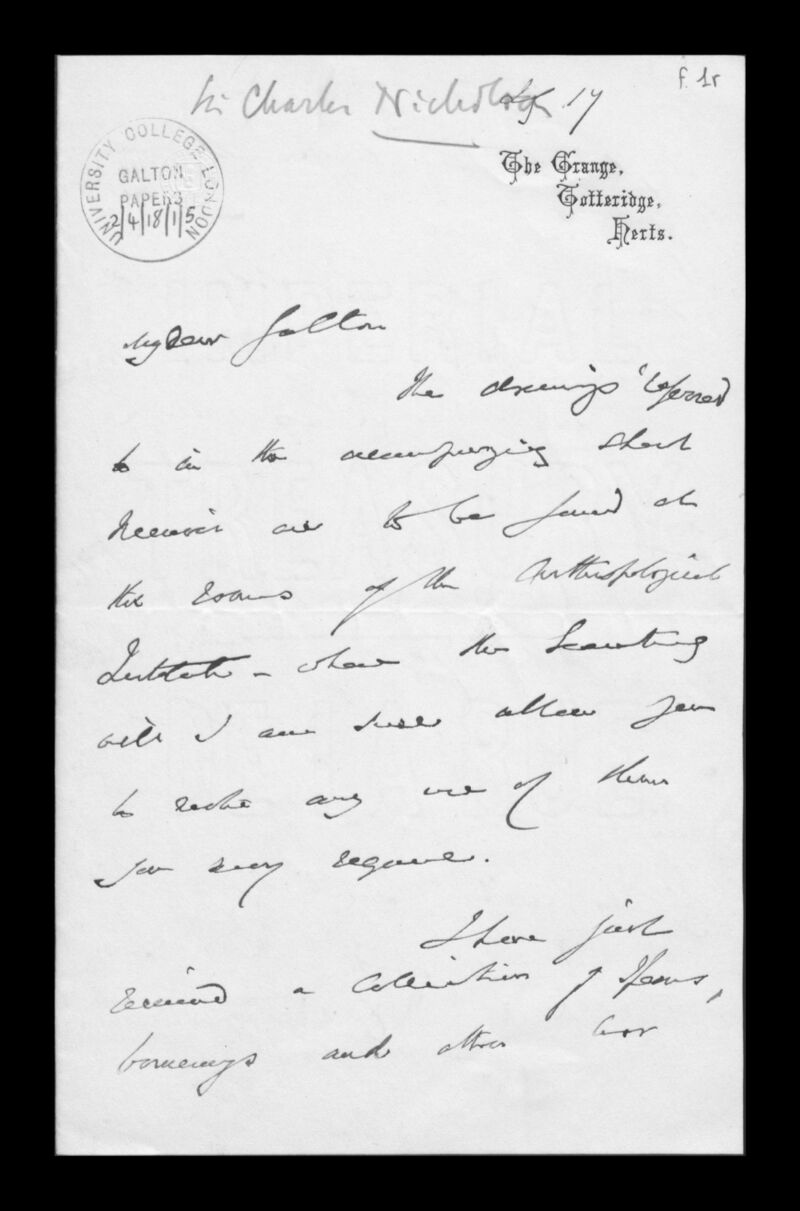 f. 1r
Sir Charles Nicholson
17
UNIVERSITY COLLEGE LONDON
GALTON
PAPERS
2/4/18/1/5
The Grange,
Totteridge,
Herts.
My dear Galton
The drawings referred
to in the accompanying short
Memoir are to be found at
the rooms of the Anthropological
Institute - where the Secretary
will I am sure allow you
to make any use of them
you may require.
I have just
received a collection of spears,
boomerangs and other war